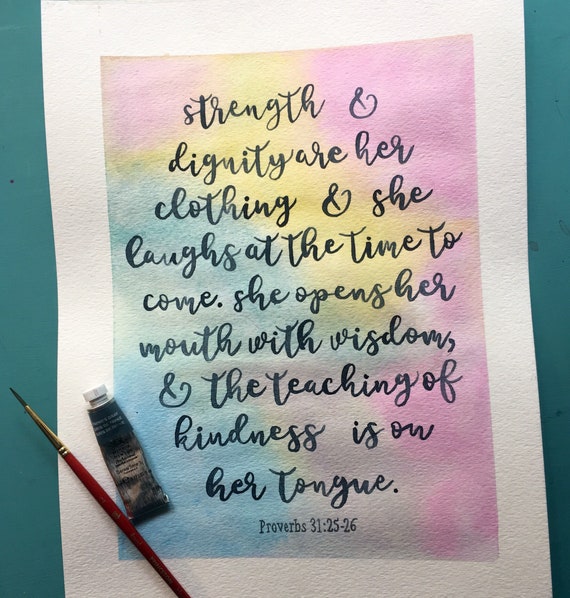 strength &
dignity are her
clothing & she
laughs at the time to
come. she opens her
mouth with wisdom,
& the teaching of
kindness is on
her tongue.
Proverbs 31:25-26